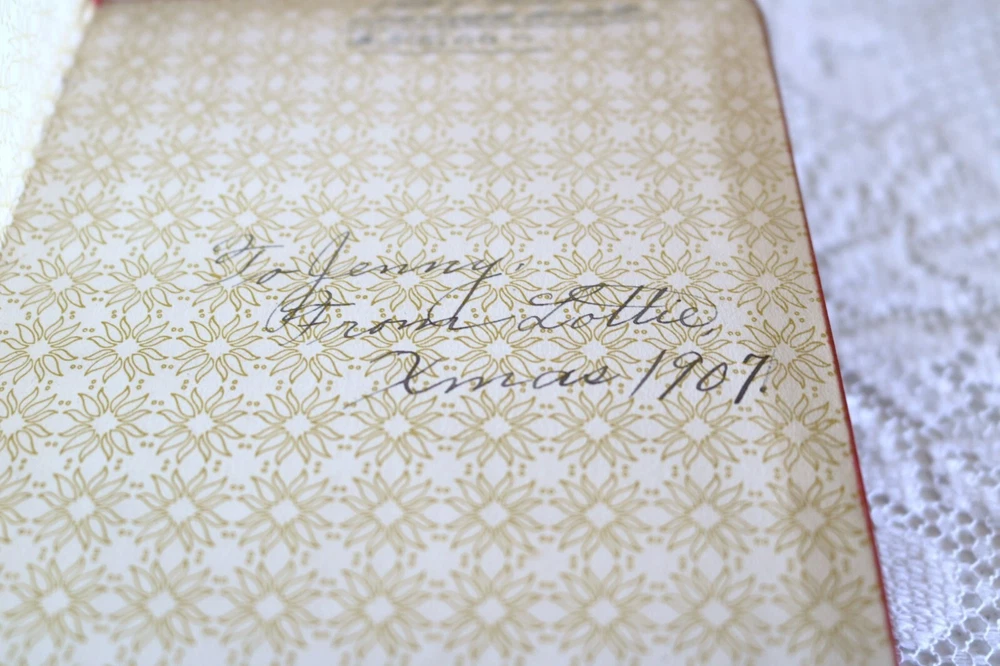 To Jenny.
From Lottie,
Xmas 1907.